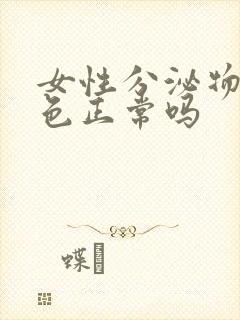 女性分泌物
色正常吗
蝶